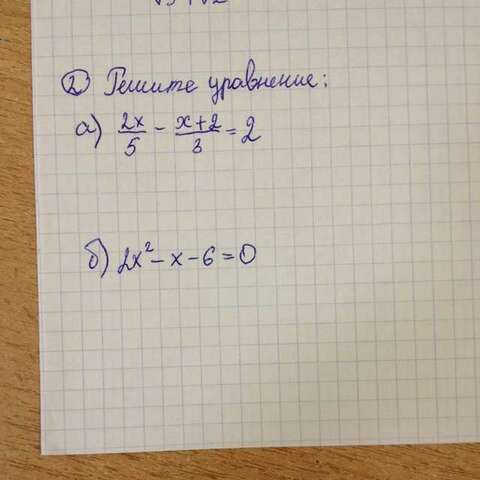 ② Решите уравнение:
а) 2x/5 - x+2/3 = 2
б) 2x² - x - 6 = 0